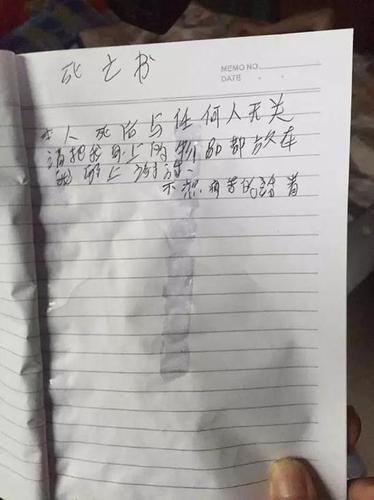 死亡书
MEMO NO.
DATE
本人死后与任何人无关
请把我身上的物品都放在
我身上谢谢.
不想 苦的活着